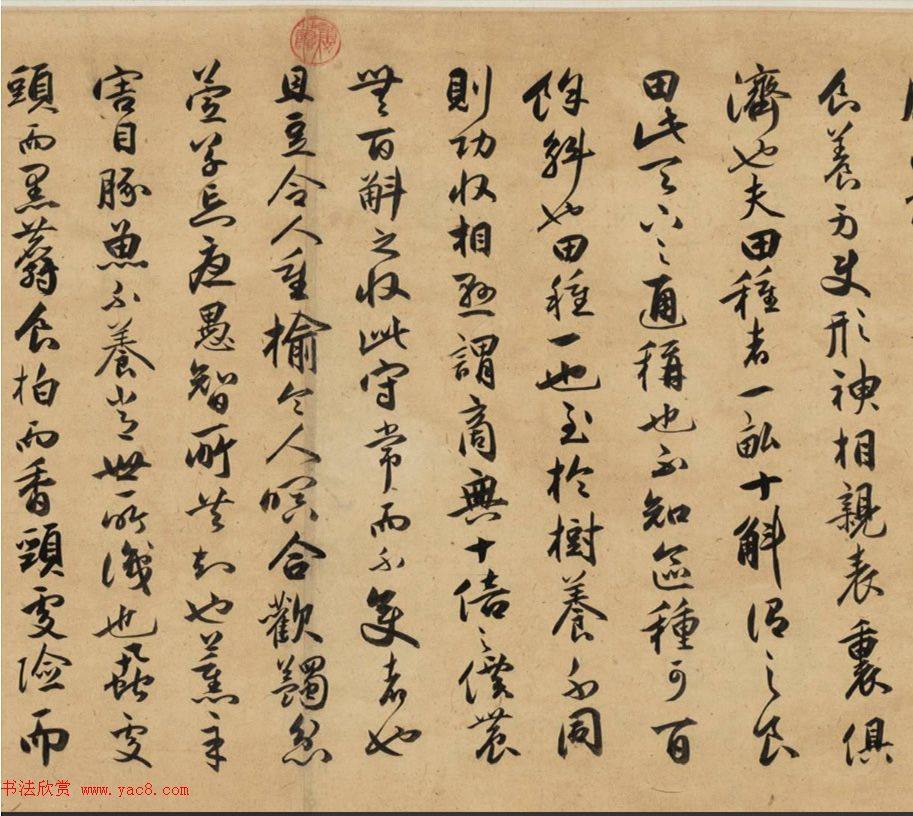 食養身使形神相親表裏俱
濟也夫田種者一畝十斛謂之良
田此天下之通稱也不知區種可百
餘斛也田種一也至於樹養不同
則功收相懸謂商無十倍之價農
無百斛之收此守常而不變者也
且豆令人重榆令人瞑合歡蠲忿
萱草忘憂愚智所共知也薰辛
害目豚魚不養常世所識也虱處
頭而黑麝食柏而香頸處險而
书法欣赏 www.yac8.com